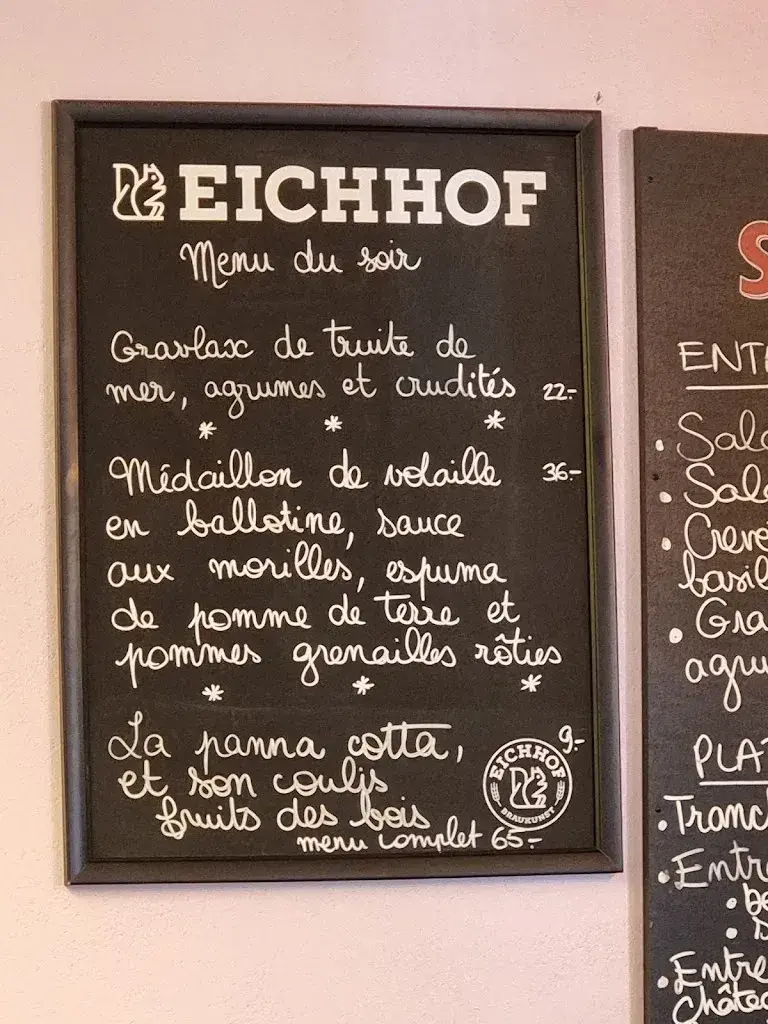 EICHHOF
Menu du soir
Gravlax de truite de
mer, agrumes et crudités 22.-
* * *
Médaillon de volaille 36.-
en ballotine, sauce
aux morilles, espuma
de pomme de terre et
pommes grenailles rôties
* * *
La panna cotta, 9.-
et son coulis
fruits des bois
menu complet 65.-
EICHHOF
BRAUKUNST
S
ENT
Sala
Sala
Creve
basil
Gra
agru
PLA
Tranc
Entre
Entre
Châte